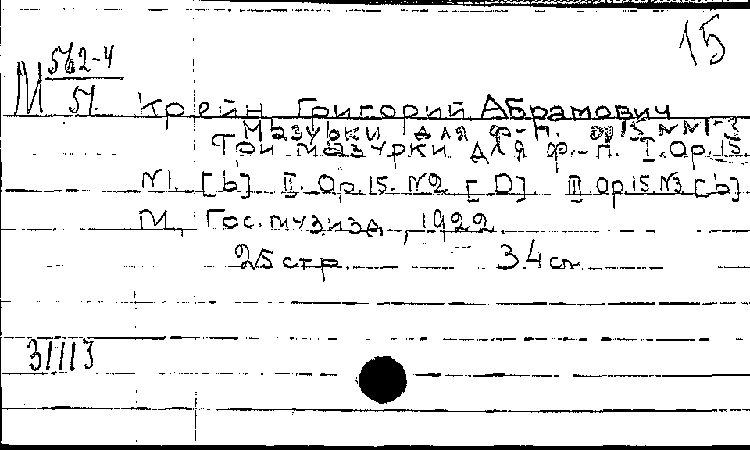 15
М 562-4
51
Крейн Григорий Абрамович
Мазурки для ф-п. op 15 NN 1-3
Три мазурки для ф.-п. I. Op. 15.
N1. [b] II. Op. 15. N2 [D]. III Op 15 N3 [b]
М, Гос. музизд, 1922.
25 стр. 34 см.
31113